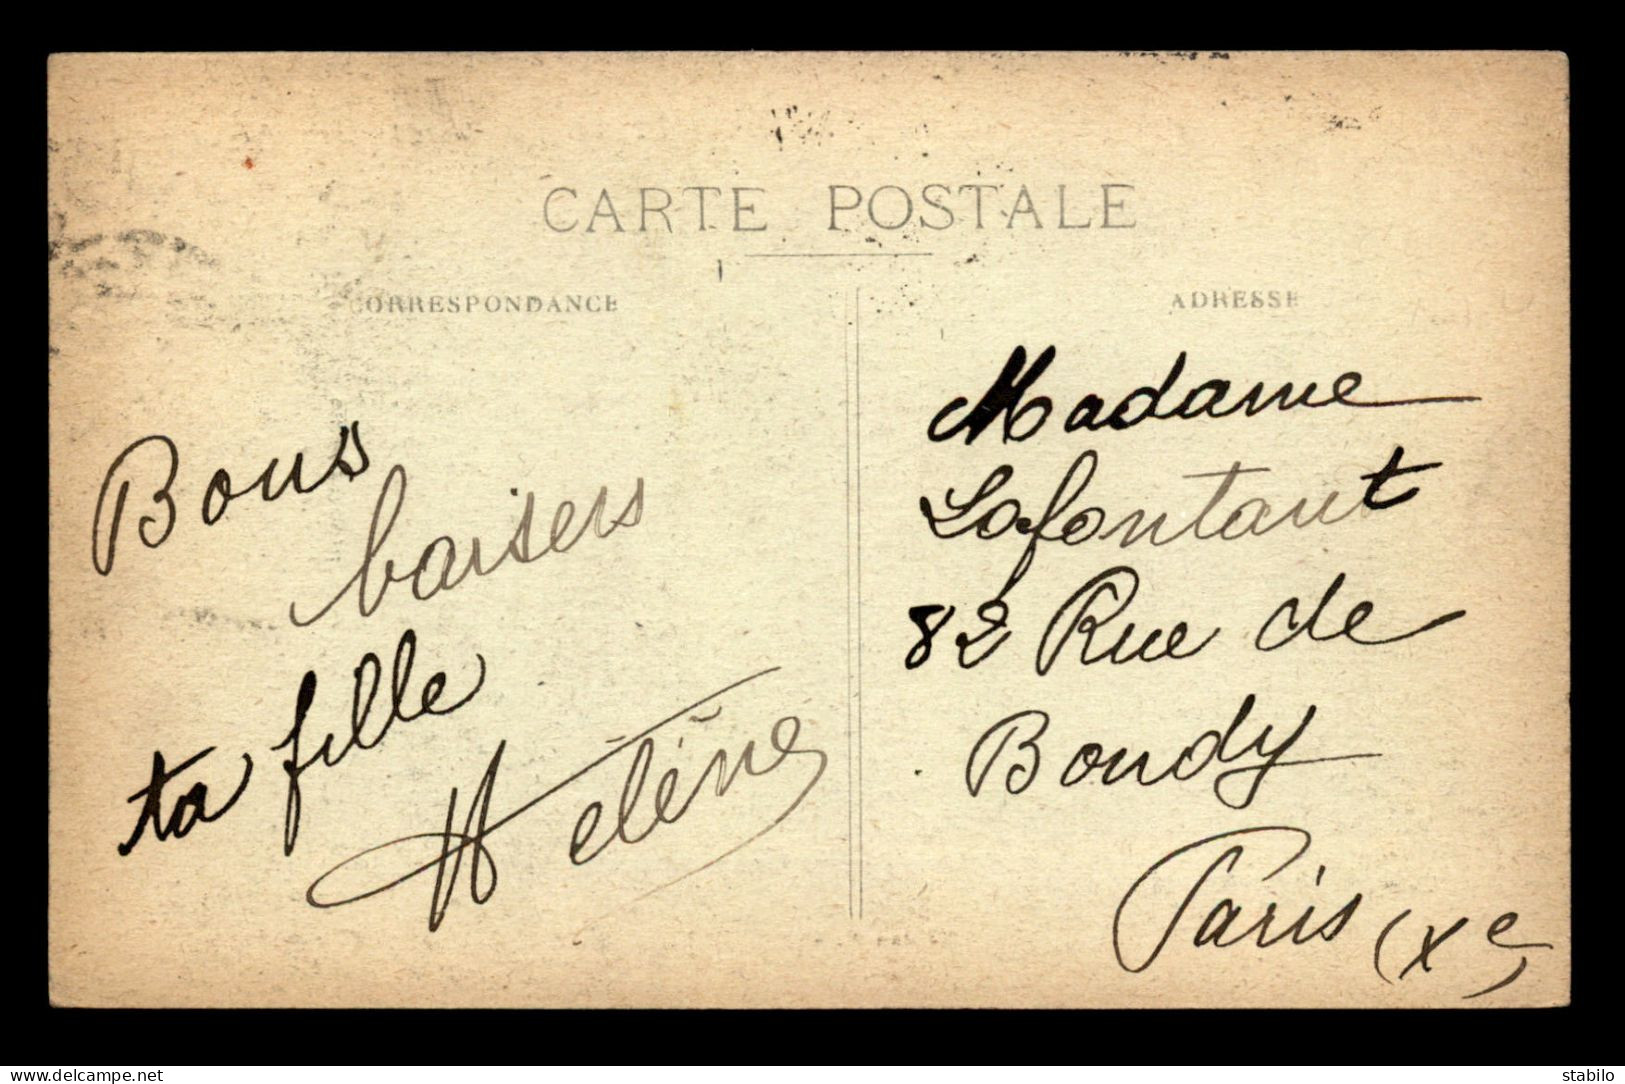 CARTE POSTALE
CORRESPONDANCE
Bons
baisers
ta fille
Hélène
ADRESSE
Madame
Lafontant
82 Rue de
Bondy
Paris (Xe)
www.delcampe.net
stabilo